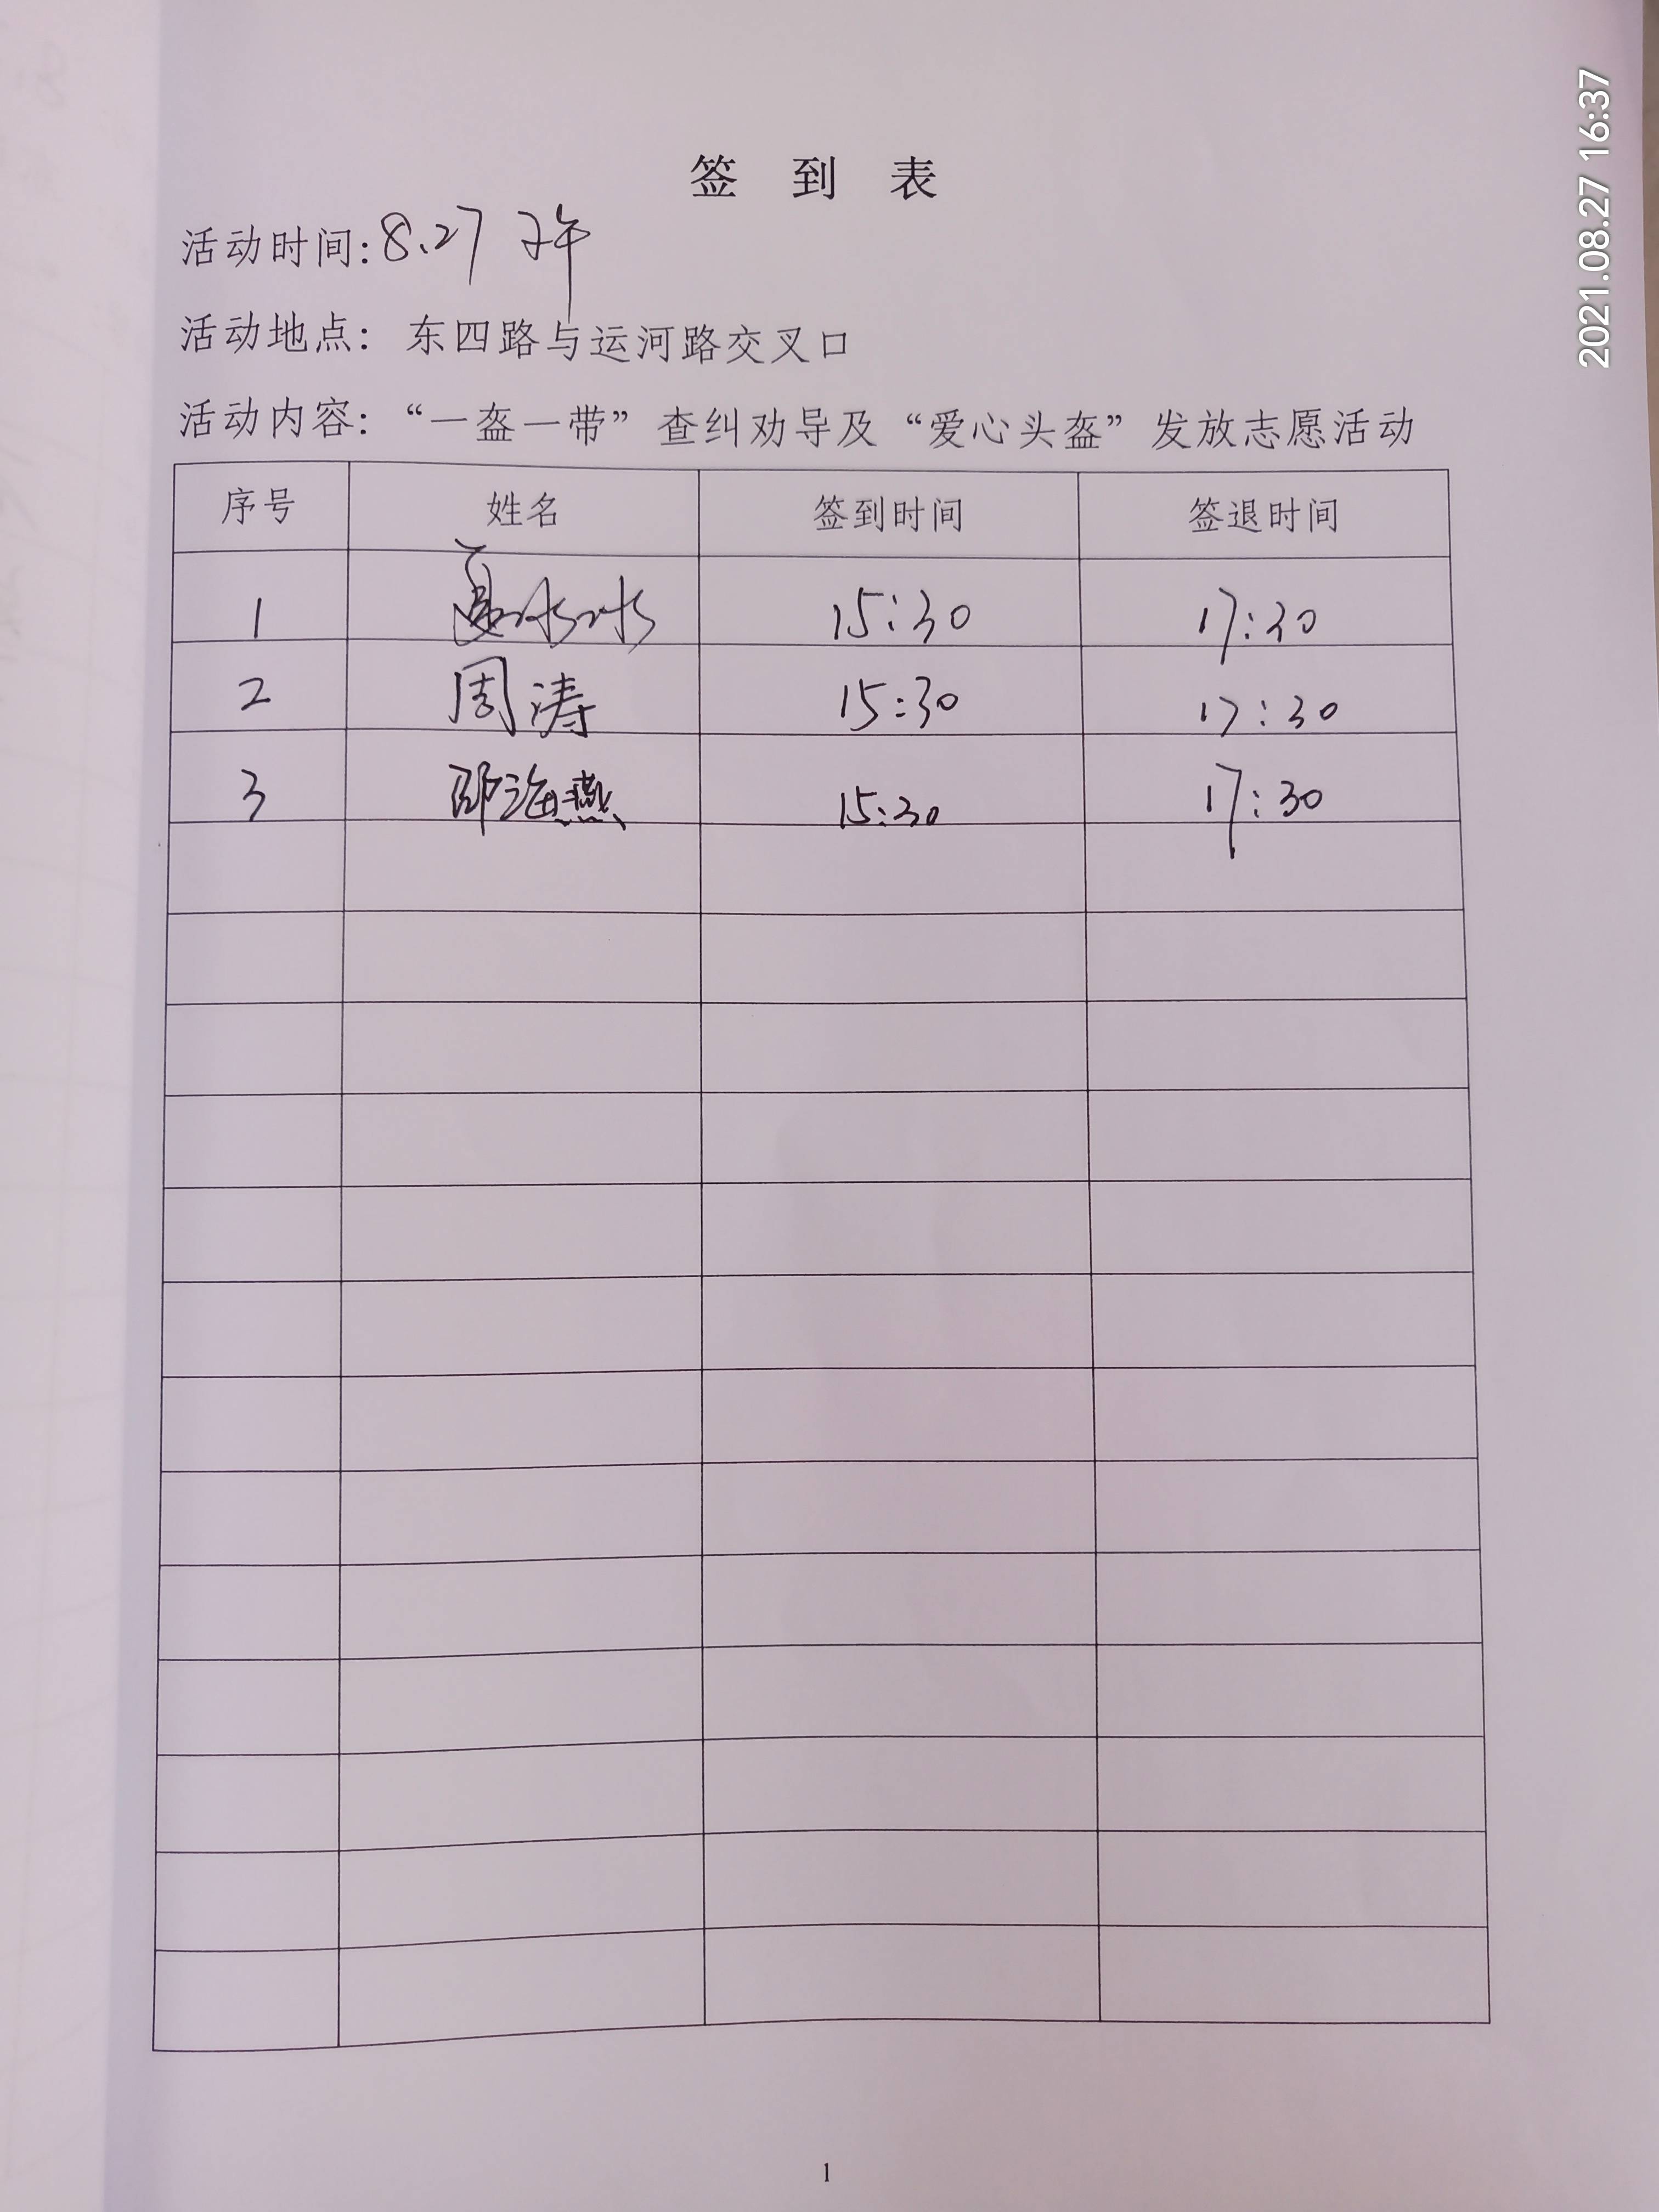 2021.08.27 16:37
签 到 表
活动时间:8.27 下午
活动地点: 东四路与运河路交叉口
活动内容: “一盔一带”查纠劝导及“爱心头盔”发放志愿活动
序号 姓名 签到时间 签退时间
1 15:30 17:30
2 周涛 15:30 17:30
3 邵海燕 15:30 17:30
1